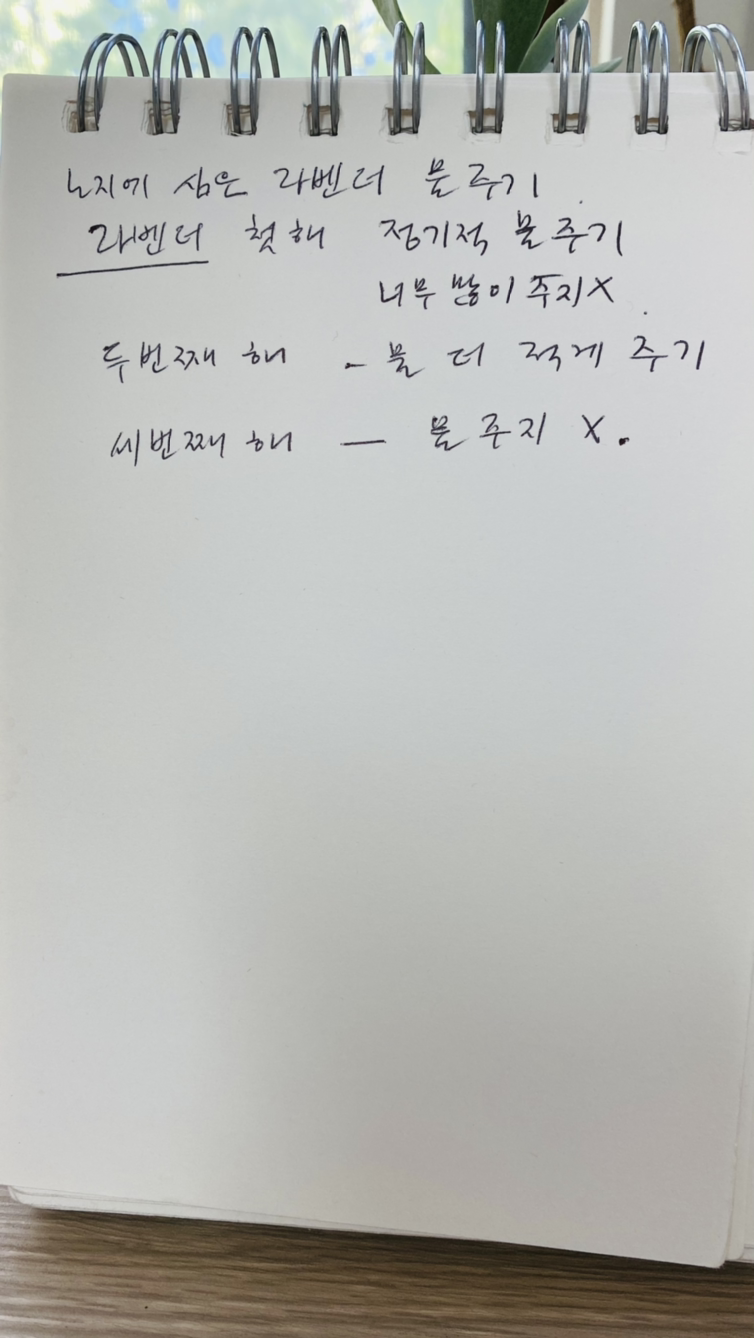 노지에 심은 라벤더 물주기
라벤더 첫해 정기적 물주기
너무 많이 주지X
두번째 해 - 물 더 적게 주기
세번째 해 — 물주지 X.